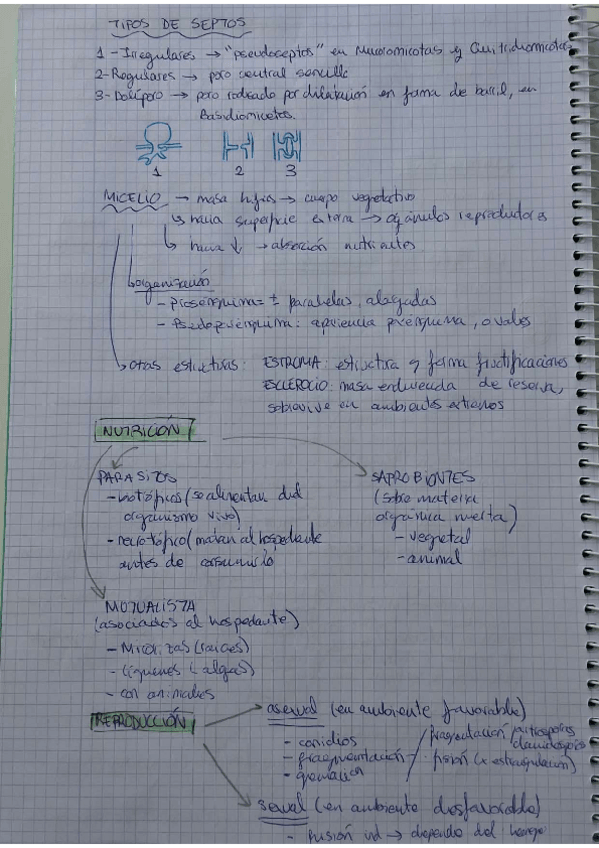 TIPOS DE SEPTOS
1 - Irregulares → "pseudoseptos" en Mucoromicotas y Quitridiomicotas
2 - Regulares → poro central sencillo
3 - Dolíporo → poro rodeado por dilatación en forma de barril, en
Basidiomicetos.
1 2 3
MICELIO → masa hifas → cuerpo vegetativo
↳ hacia superficie externa → orgánulos reproductores
↳ hacia ↓ → absorción nutrientes
↳ organización
- Prosénquima = ± paralelas, alargadas
- Pseudoparénquima: apariencia parénquima, ovales
↳ otras estructuras: ESTROMA: estructura q forma fructificaciones
ESCLEROCIO: masa endurecida de reserva,
sobrevive en ambientes extremos
NUTRICIÓN
PARÁSITOS
- biotróficos (se alimentan del
organismo vivo)
- necrotrófico (matan al hospedante
antes de consumirlo
SAPROBIONTES
(sobre materia
orgánica muerta)
- vegetal
- animal
MUTUALISTA
(asociados al hospedante)
- Micorrizas (raíces)
- líquenes (algas)
- con animales
REPRODUCCIÓN
asexual (en ambiente favorable)
- conidios
- fragmentación
- gemación
fragmentación
artrosporas
clamidosporas
fisión (x estrangulación)
sexual (en ambiente desfavorable)
- fusión ind → depende del hongo